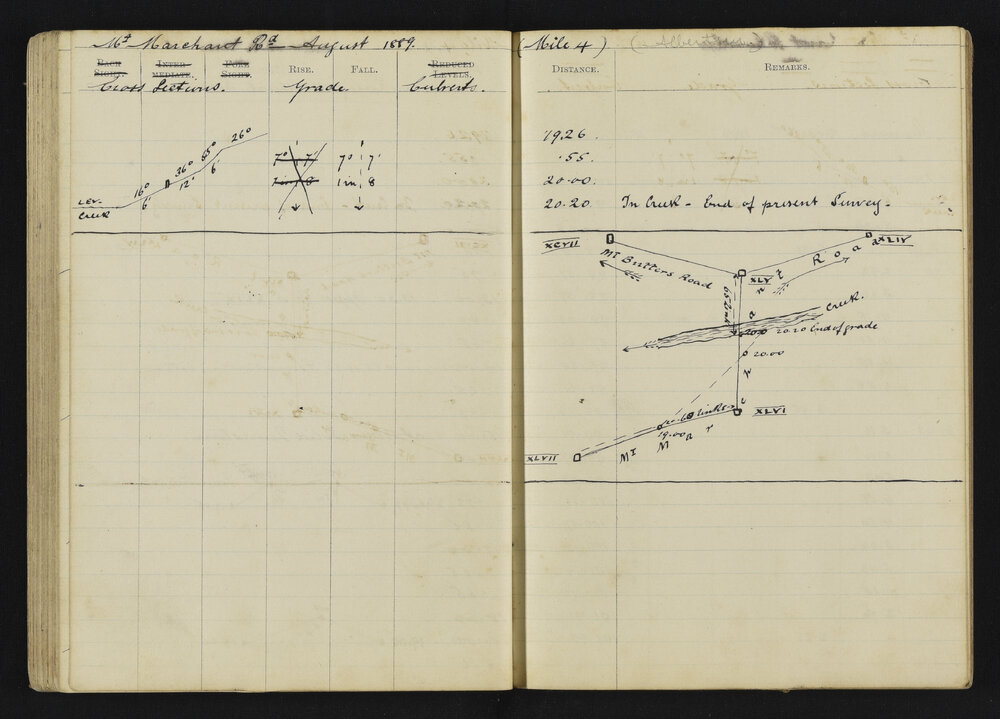 Mt Marchant Rd August 1889.
BACK SIGHT. INTER-MEDIATE. FORE SIGHT. RISE. FALL. REDUCED LEVELS.
Cross Sections. Grade. Culverts.
26°
65°
6'
36°
12'
16°
6'
LEV.
Creek
7° 7' 7° 7'
1 in 8 1 in 8
(Mile 4)
DISTANCE. REMARKS.
19.26.
.55.
20.00.
20.20 In Creek - End of present Survey -
XCVII
XLIV
Mt Butters Road
XLV
Road
Creek.
20.20 End of grade
20.00
XLVI
links
19.00
Mt Mar
XLVII